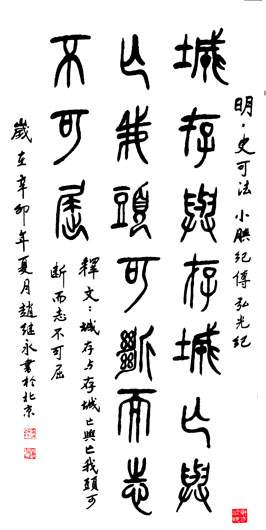 明·史可法 小腆纪傳弘光纪
城存與存城亡與
亡我頭可斷而志
不可屈
釋文：城存与存城亡與亡我頭可
断而志不可屈
歲在辛卯年夏月趙继永書於北京